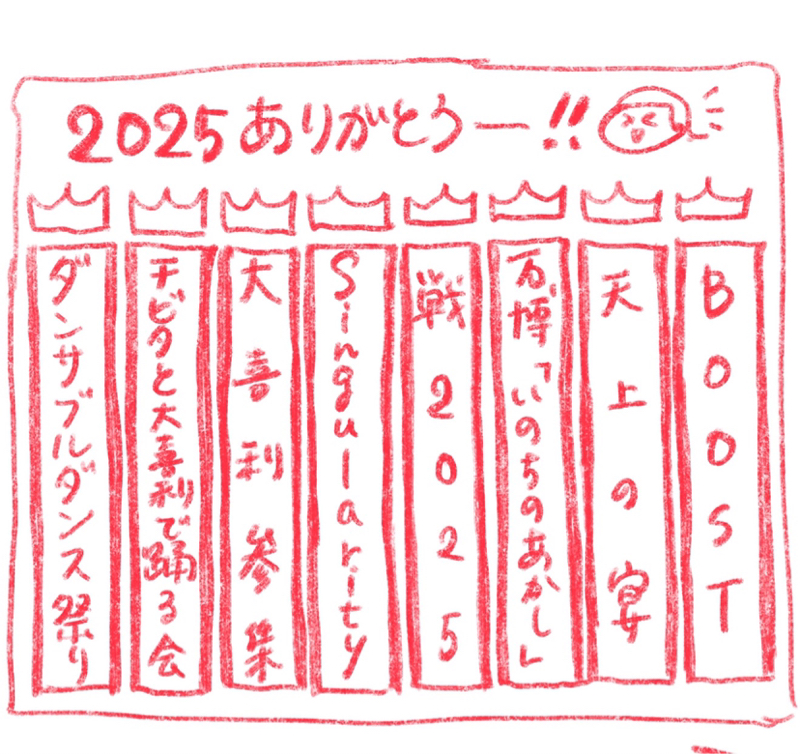 2025ありがとうー!!
BOOST
天上の宴
万博「いのちのあかし」
戦2025
Singularity
大喜利参集
チビタと大喜利で踊る会
ダンサブルダンス祭り